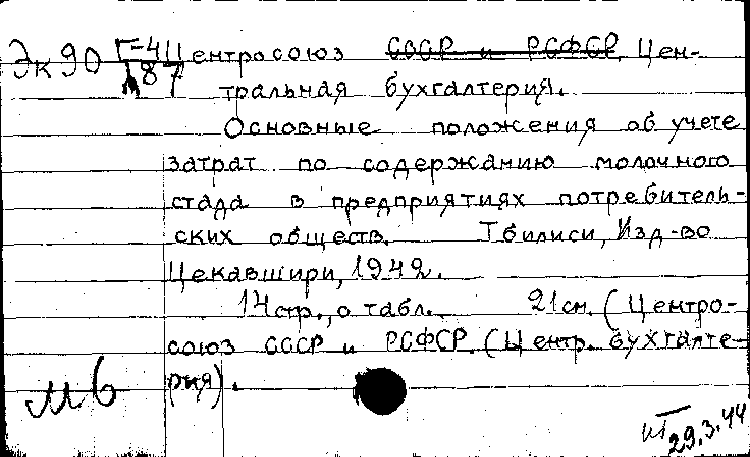 Эк90 Г-41 Центросоюз СССР и РСФСР. Цен-
187 тральная бухгалтерия.
Основные положения об учете
затрат по содержанию молочного
стада в предприятиях потребитель-
ских обществ. Тбилиси, Изд-во
Цекавшири, 1942.
14 стр., с табл. 21 см. (Центро-
союз СССР и РСФСР. (Центр. бухгалте-
рия).
29.3.44